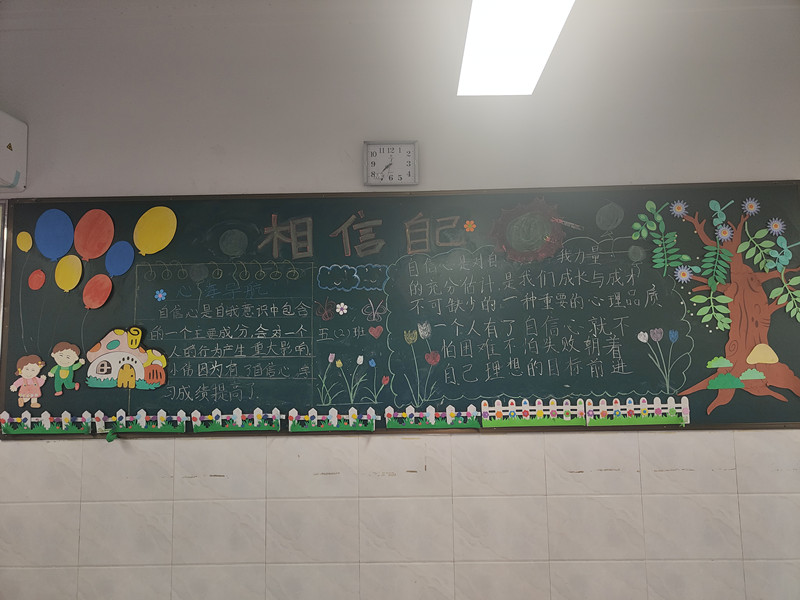 相信自己
心灵导航
自信心是自我意识中包含
的一个主要成分,会对一个
人的行为产生重大影响
小伟因为有了自信心,学
习成绩提高了
五(2)班
自信心是对自
我力量
的充分估计,是我们成长与成才
不可缺少的一种重要的心理品质
一个人有了自信心就不
怕困难不消失败朝着
自己理想的目标前进
10 11 12 1 2
9 3
8 7 6 5 4